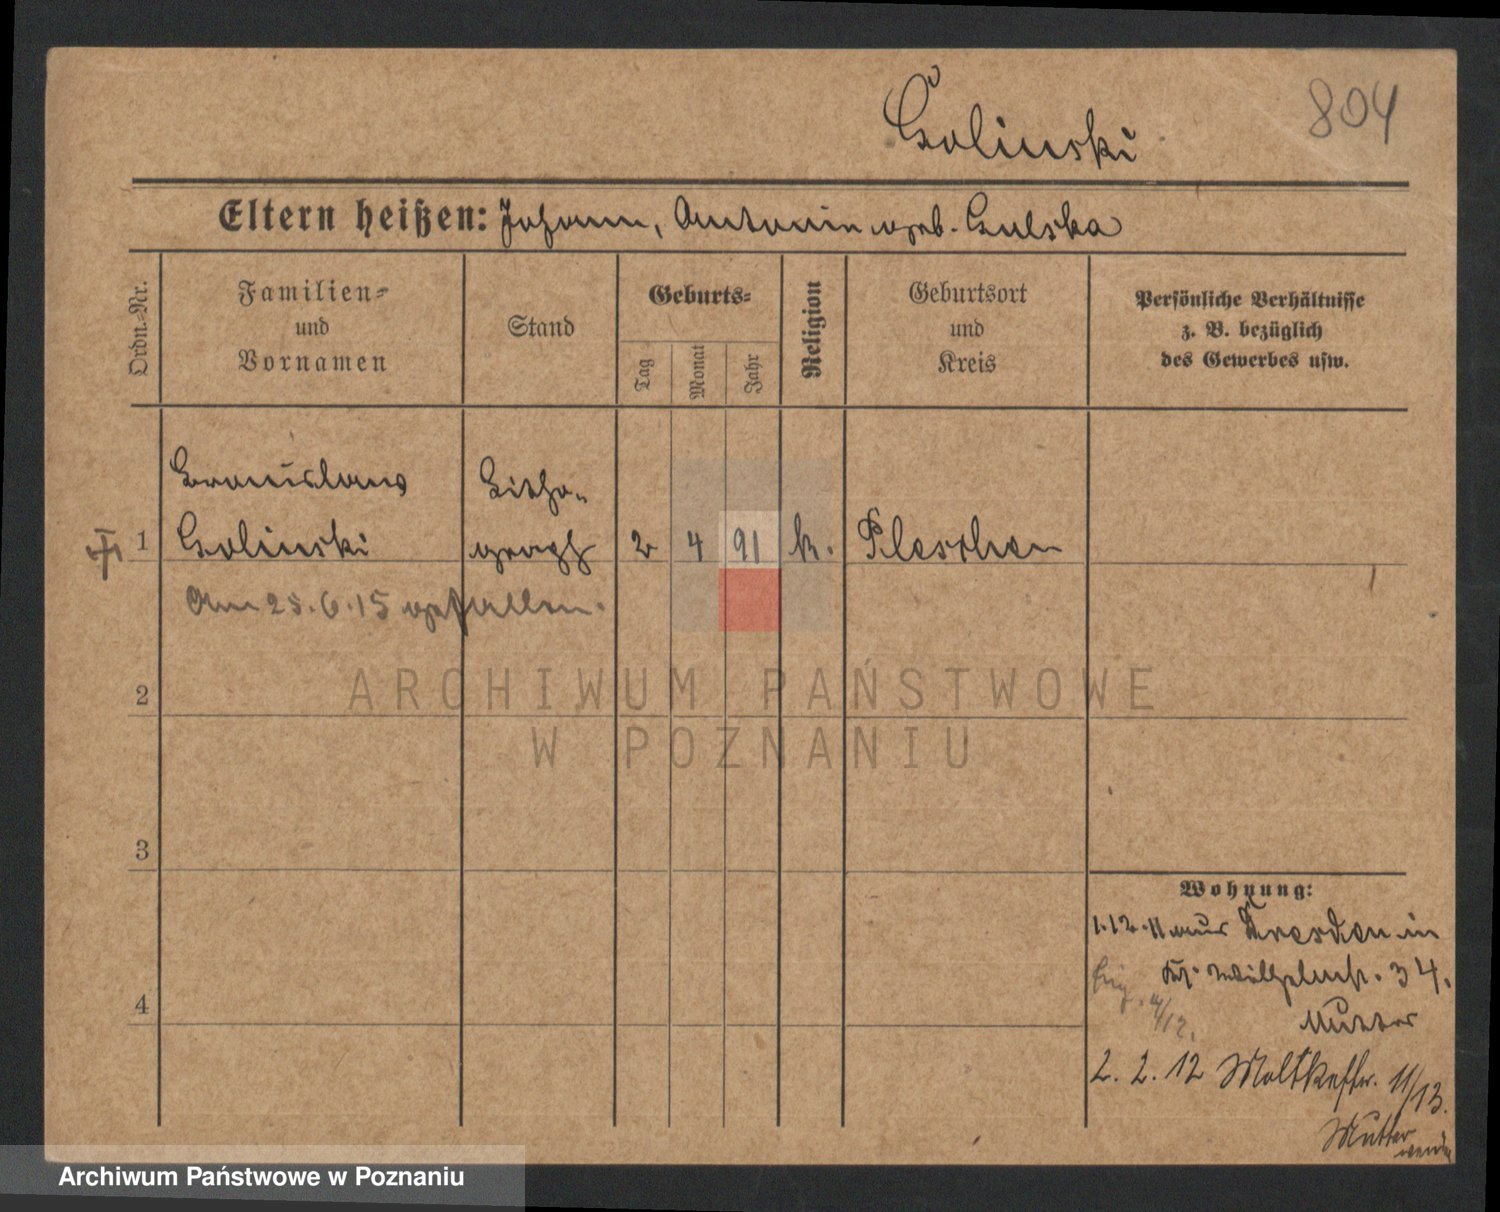 804
Golinski
Eltern heißen: Johann, Antonie geb. Gulska
Ordn.-Nr.
Familien-
und
Vornamen
Stand
Geburts-
Tag
Monat
Jahr
Religion
Geburtsort
und
Kreis
Persönliche Verhältnisse
z. B. bezüglich
des Gewerbes usw.
Bronislaus Litho-
1 Golinski graph 2 4 91 k. Pleschen
Am 25.6.15 gefallen.
2
3
4
Wohnung:
1.12.11 aus Dresden in
Wilhelmstr. 34.
Mutter
2. 2. 12 Moltkestr. 11/13.
Mutter
ARCHIWUM PAŃSTWOWE
W POZNANIU
Archiwum Państwowe w Poznaniu